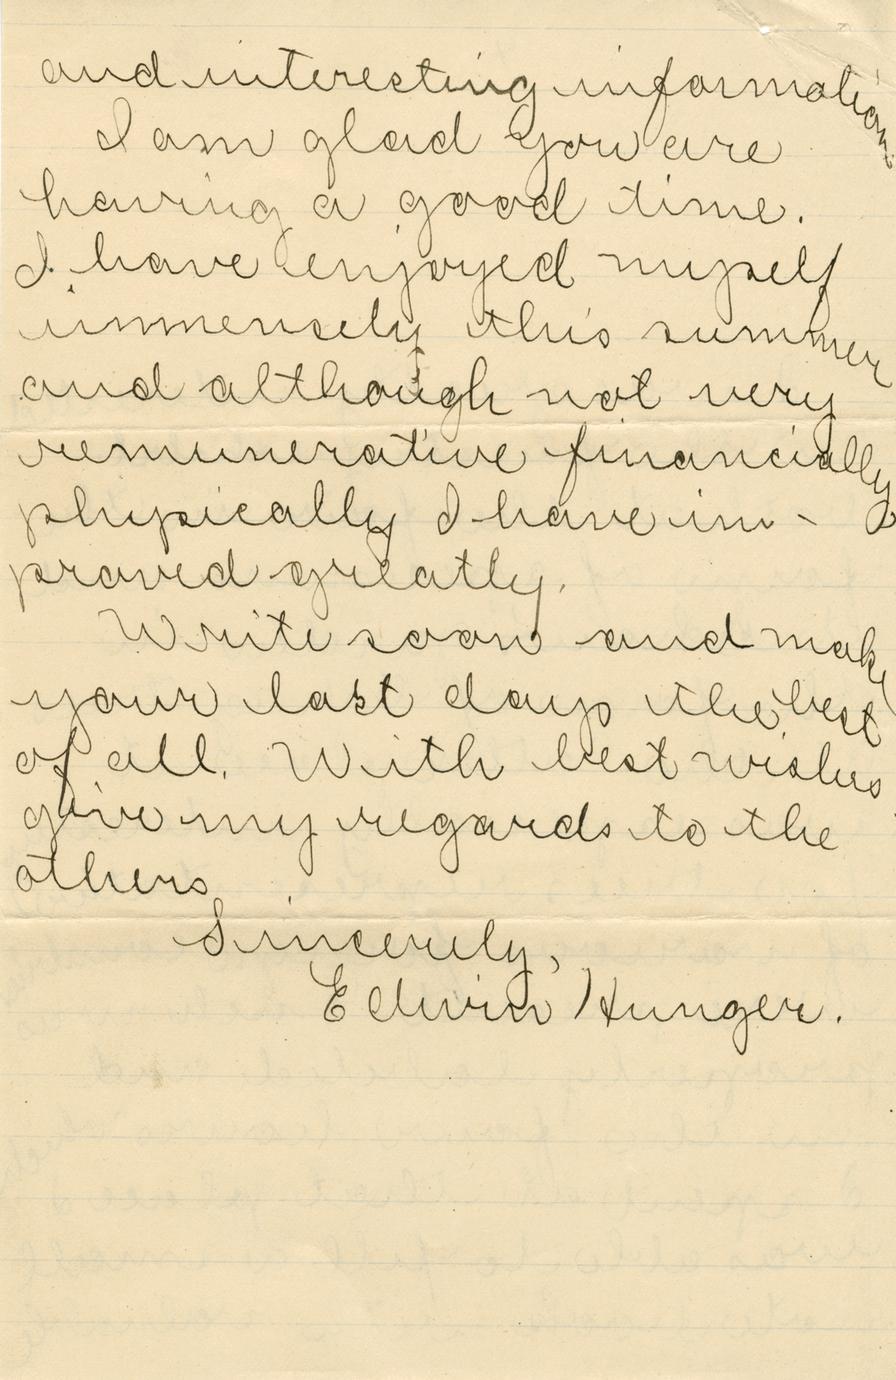 and interesting information.
I am glad you are
having a good time.
I have enjoyed myself
immensely this summer
and although not very
remunerative financially
physically I have im-
proved greatly.
Write soon and make
your last days the best
of all. With best wishes
give my regards to the
others
Sincerely,
Edwin Hunger.